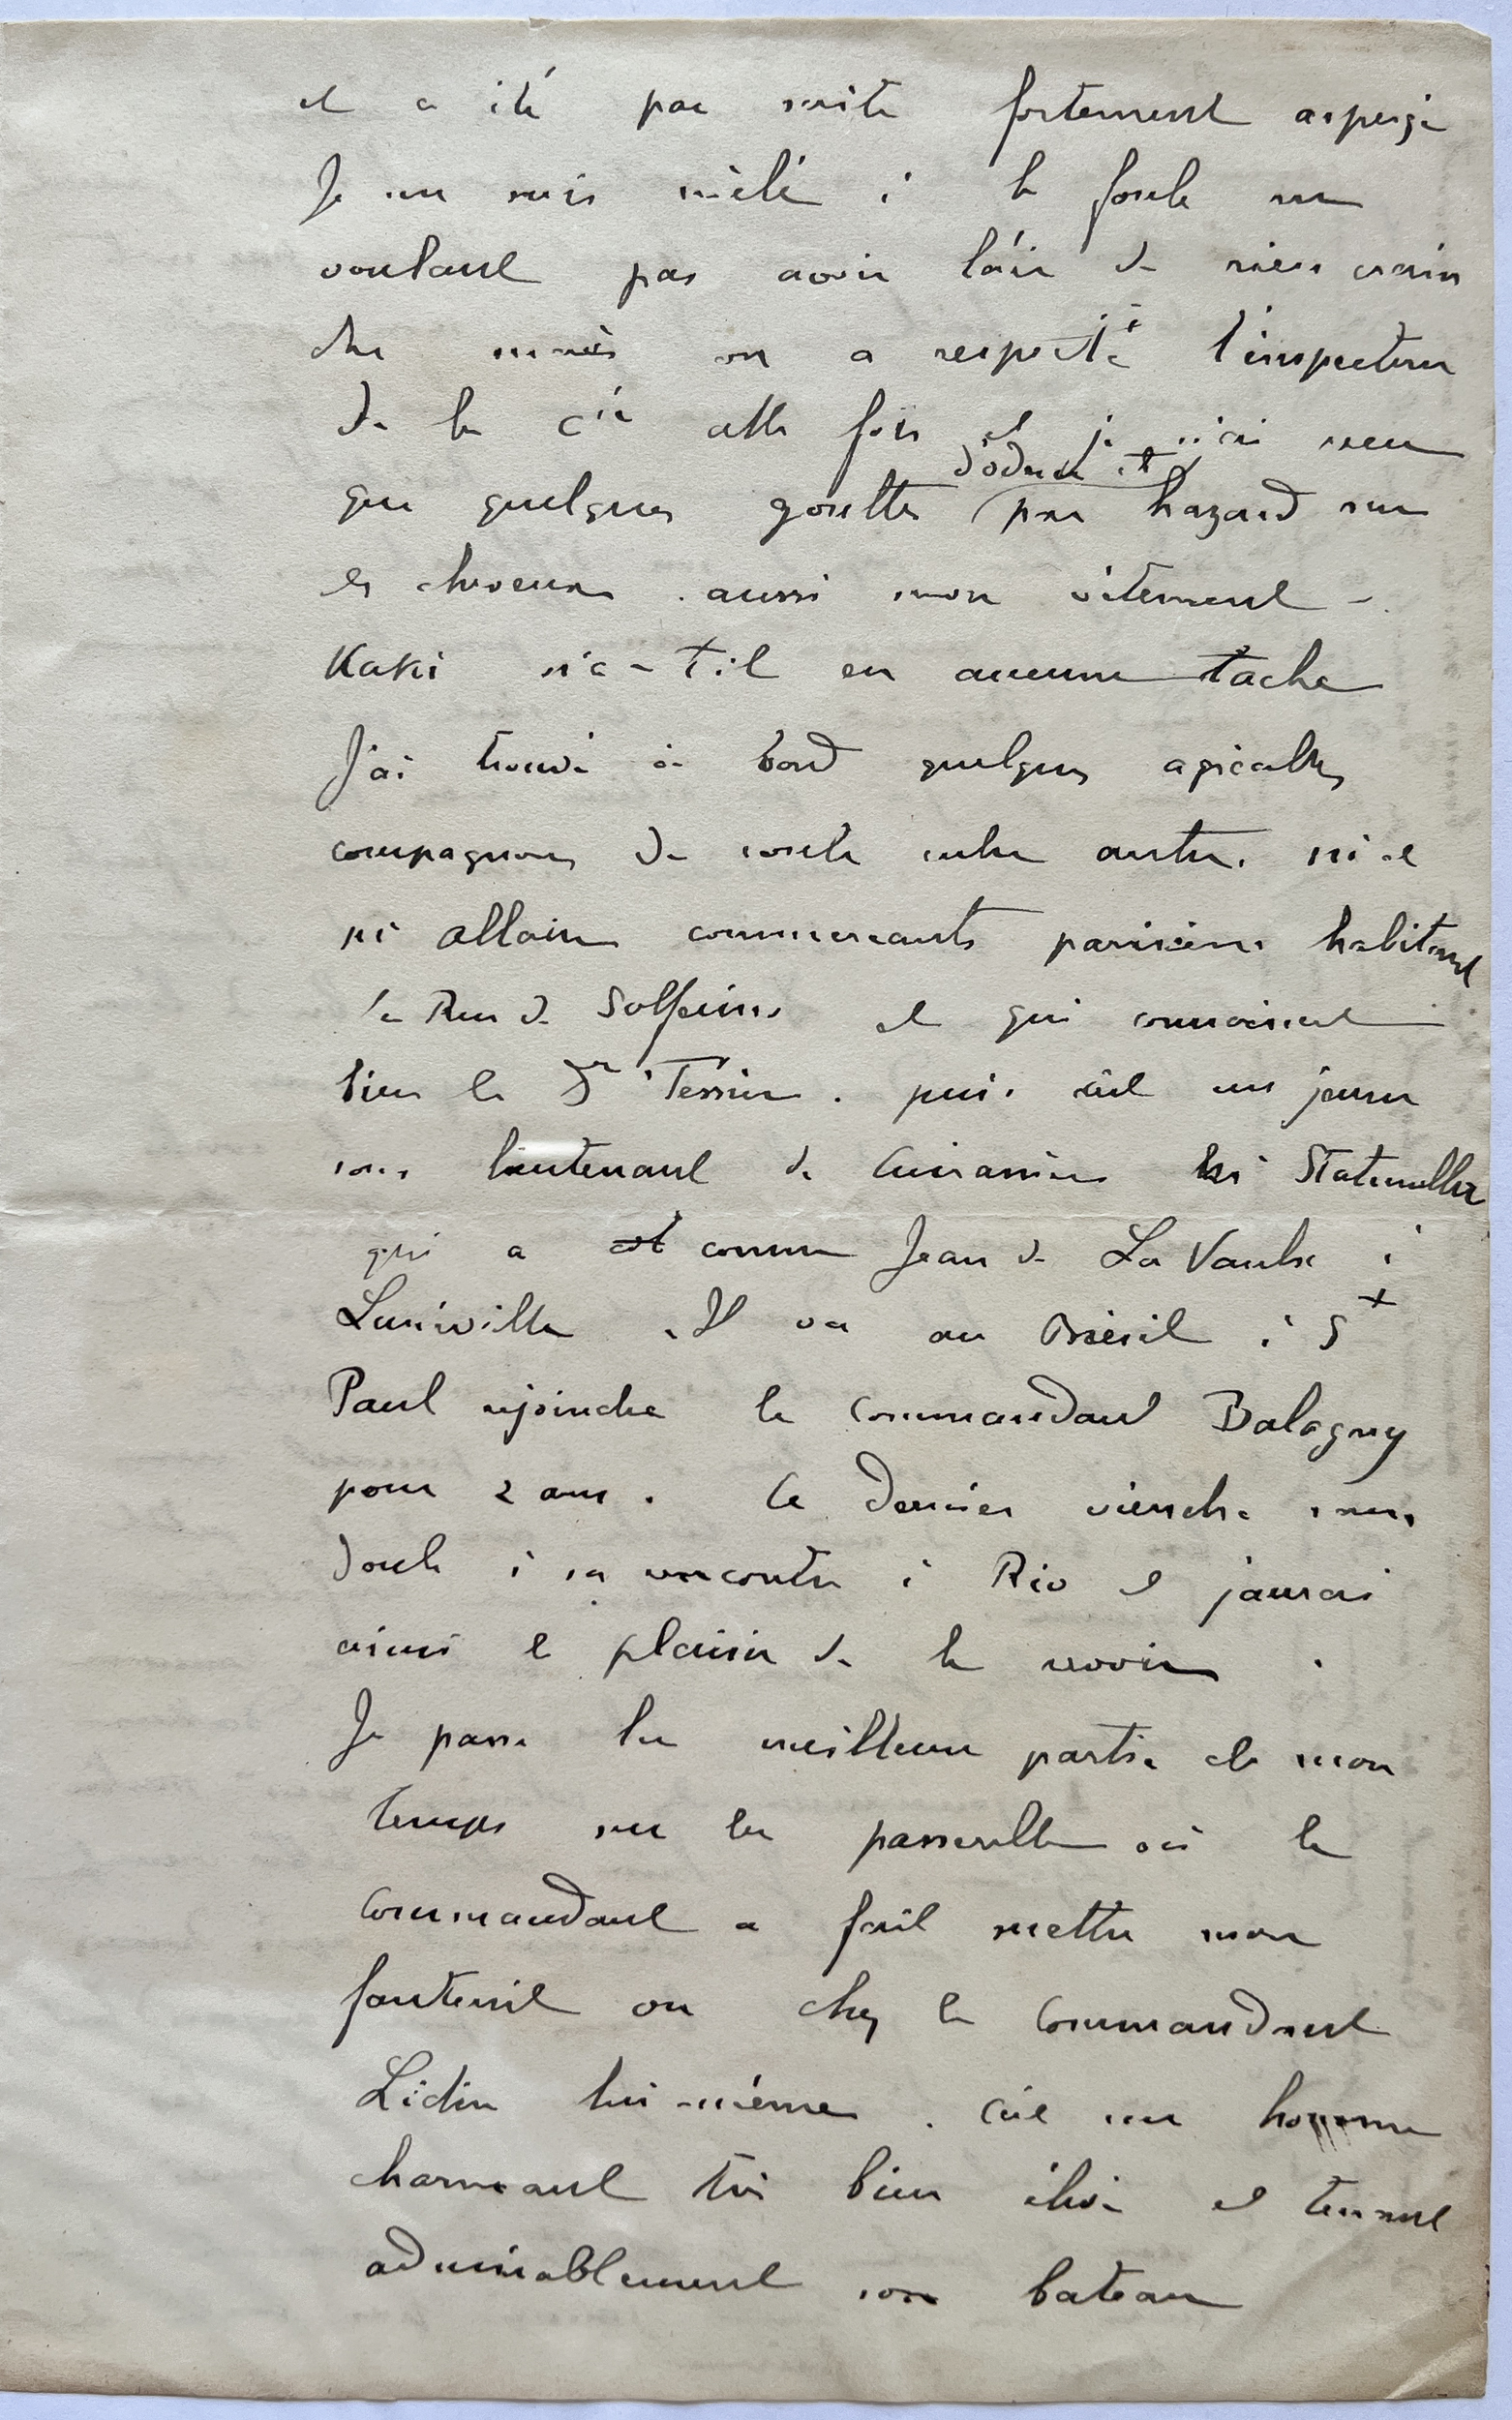 et a été par suite fortement aspergé
Je me suis mêlé à la foule ne
voulant pas avoir l'air de rien crain
dre mais on a respecté l'inspecteur
de la Cie cette fois et je n'ai reçu
d'odeur et
que quelques gouttes par hazard sur
les cheveux aussi mon vêtement
Kaki n'a-t-il eu aucune tache
J'ai trouvé à bord quelques agréables
compagnons de route entre autres Mr et
Me Allain commercants parisiens habitant
la Rue de Solferino et qui connaissent
bien le Dr Tessier. puis c'est un jeune
sous lieutenant de Cuirassiers
qui a connu Jean de La Vaulx à
Lunéville. Il va au Brésil à St
Paul rejoindre le commandant Balagny
pour 2 ans. Ce dernier viendra sans
doute à sa rencontre à Rio et j'aurai
ainsi le plaisir de le revoir.
Je passe la meilleure partie de mon
temps sur la passerelle où le
commandant a fait mettre mon
fauteuil ou chez le Commandant
Lidin lui-même. c'est un homme
charmant très bien élevé et tenant
admirablement son bateau